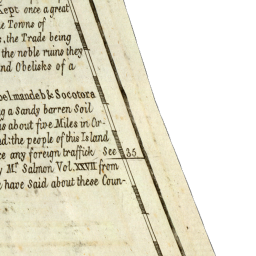 Kept once a great
e Towns of
s, the Trade being
the noble ruins they
nd Obelisks of a
belmandeb & Socotora
g a Sandy barren Soil
is about five Miles in Cir-
d: the people of this Island
ce any foreign traffick See
35
y Mr. Salmon Vol. XXVII from
e have Said about these Coun-